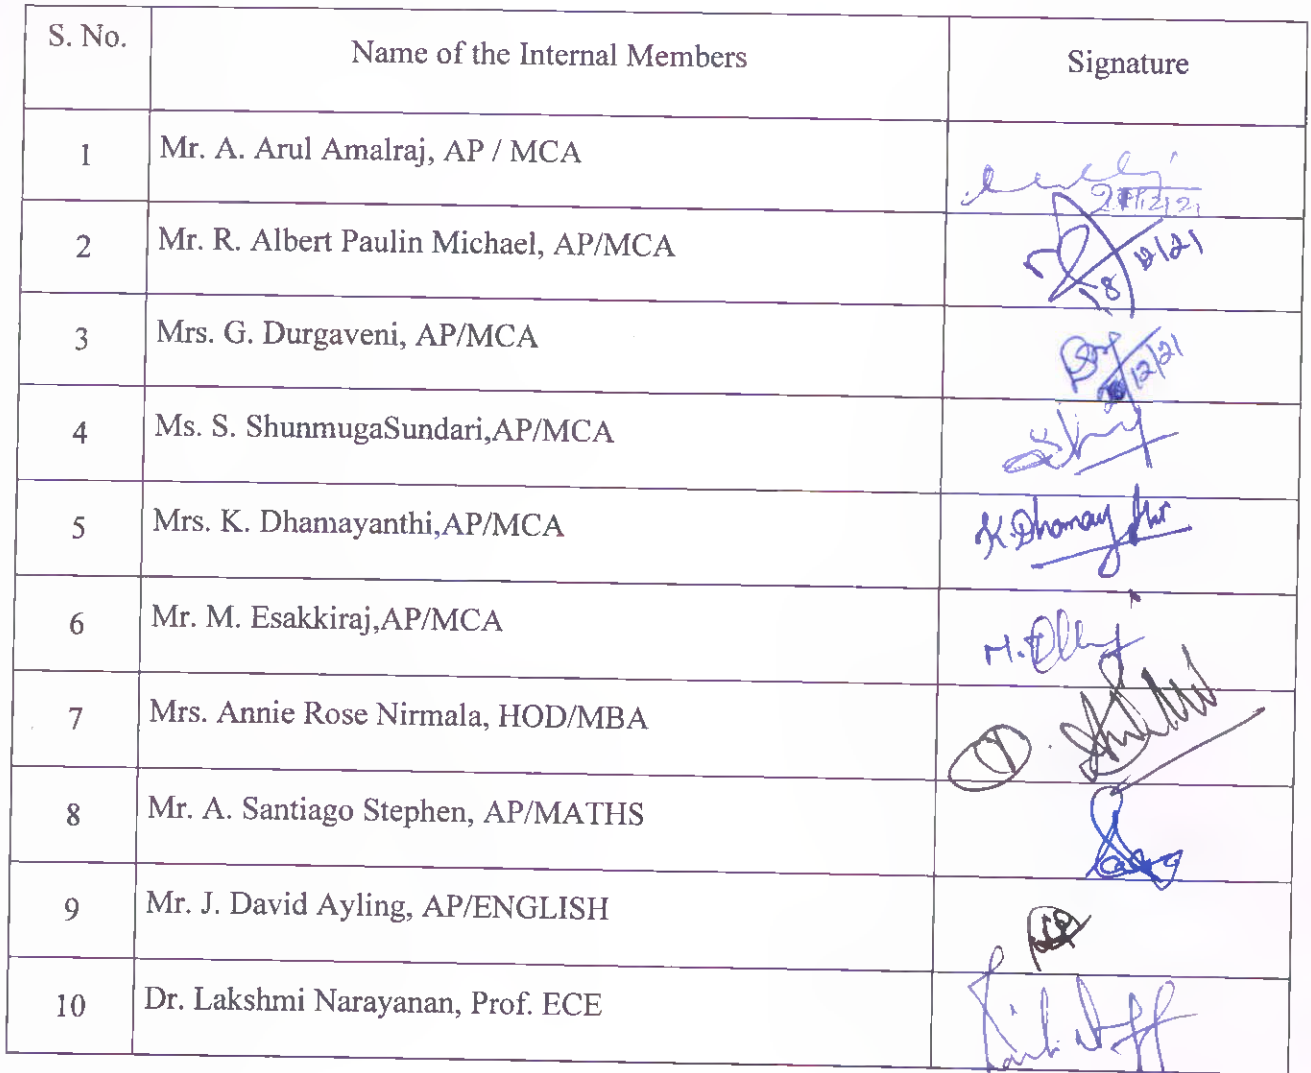 S. No. Name of the Internal Members Signature
1 Mr. A. Arul Amalraj, AP / MCA
2 Mr. R. Albert Paulin Michael, AP/MCA 18 12/21
3 Mrs. G. Durgaveni, AP/MCA 12/21
4 Ms. S. ShunmugaSundari,AP/MCA
5 Mrs. K. Dhamayanthi,AP/MCA
6 Mr. M. Esakkiraj,AP/MCA
7 Mrs. Annie Rose Nirmala, HOD/MBA
8 Mr. A. Santiago Stephen, AP/MATHS
9 Mr. J. David Ayling, AP/ENGLISH
10 Dr. Lakshmi Narayanan, Prof. ECE